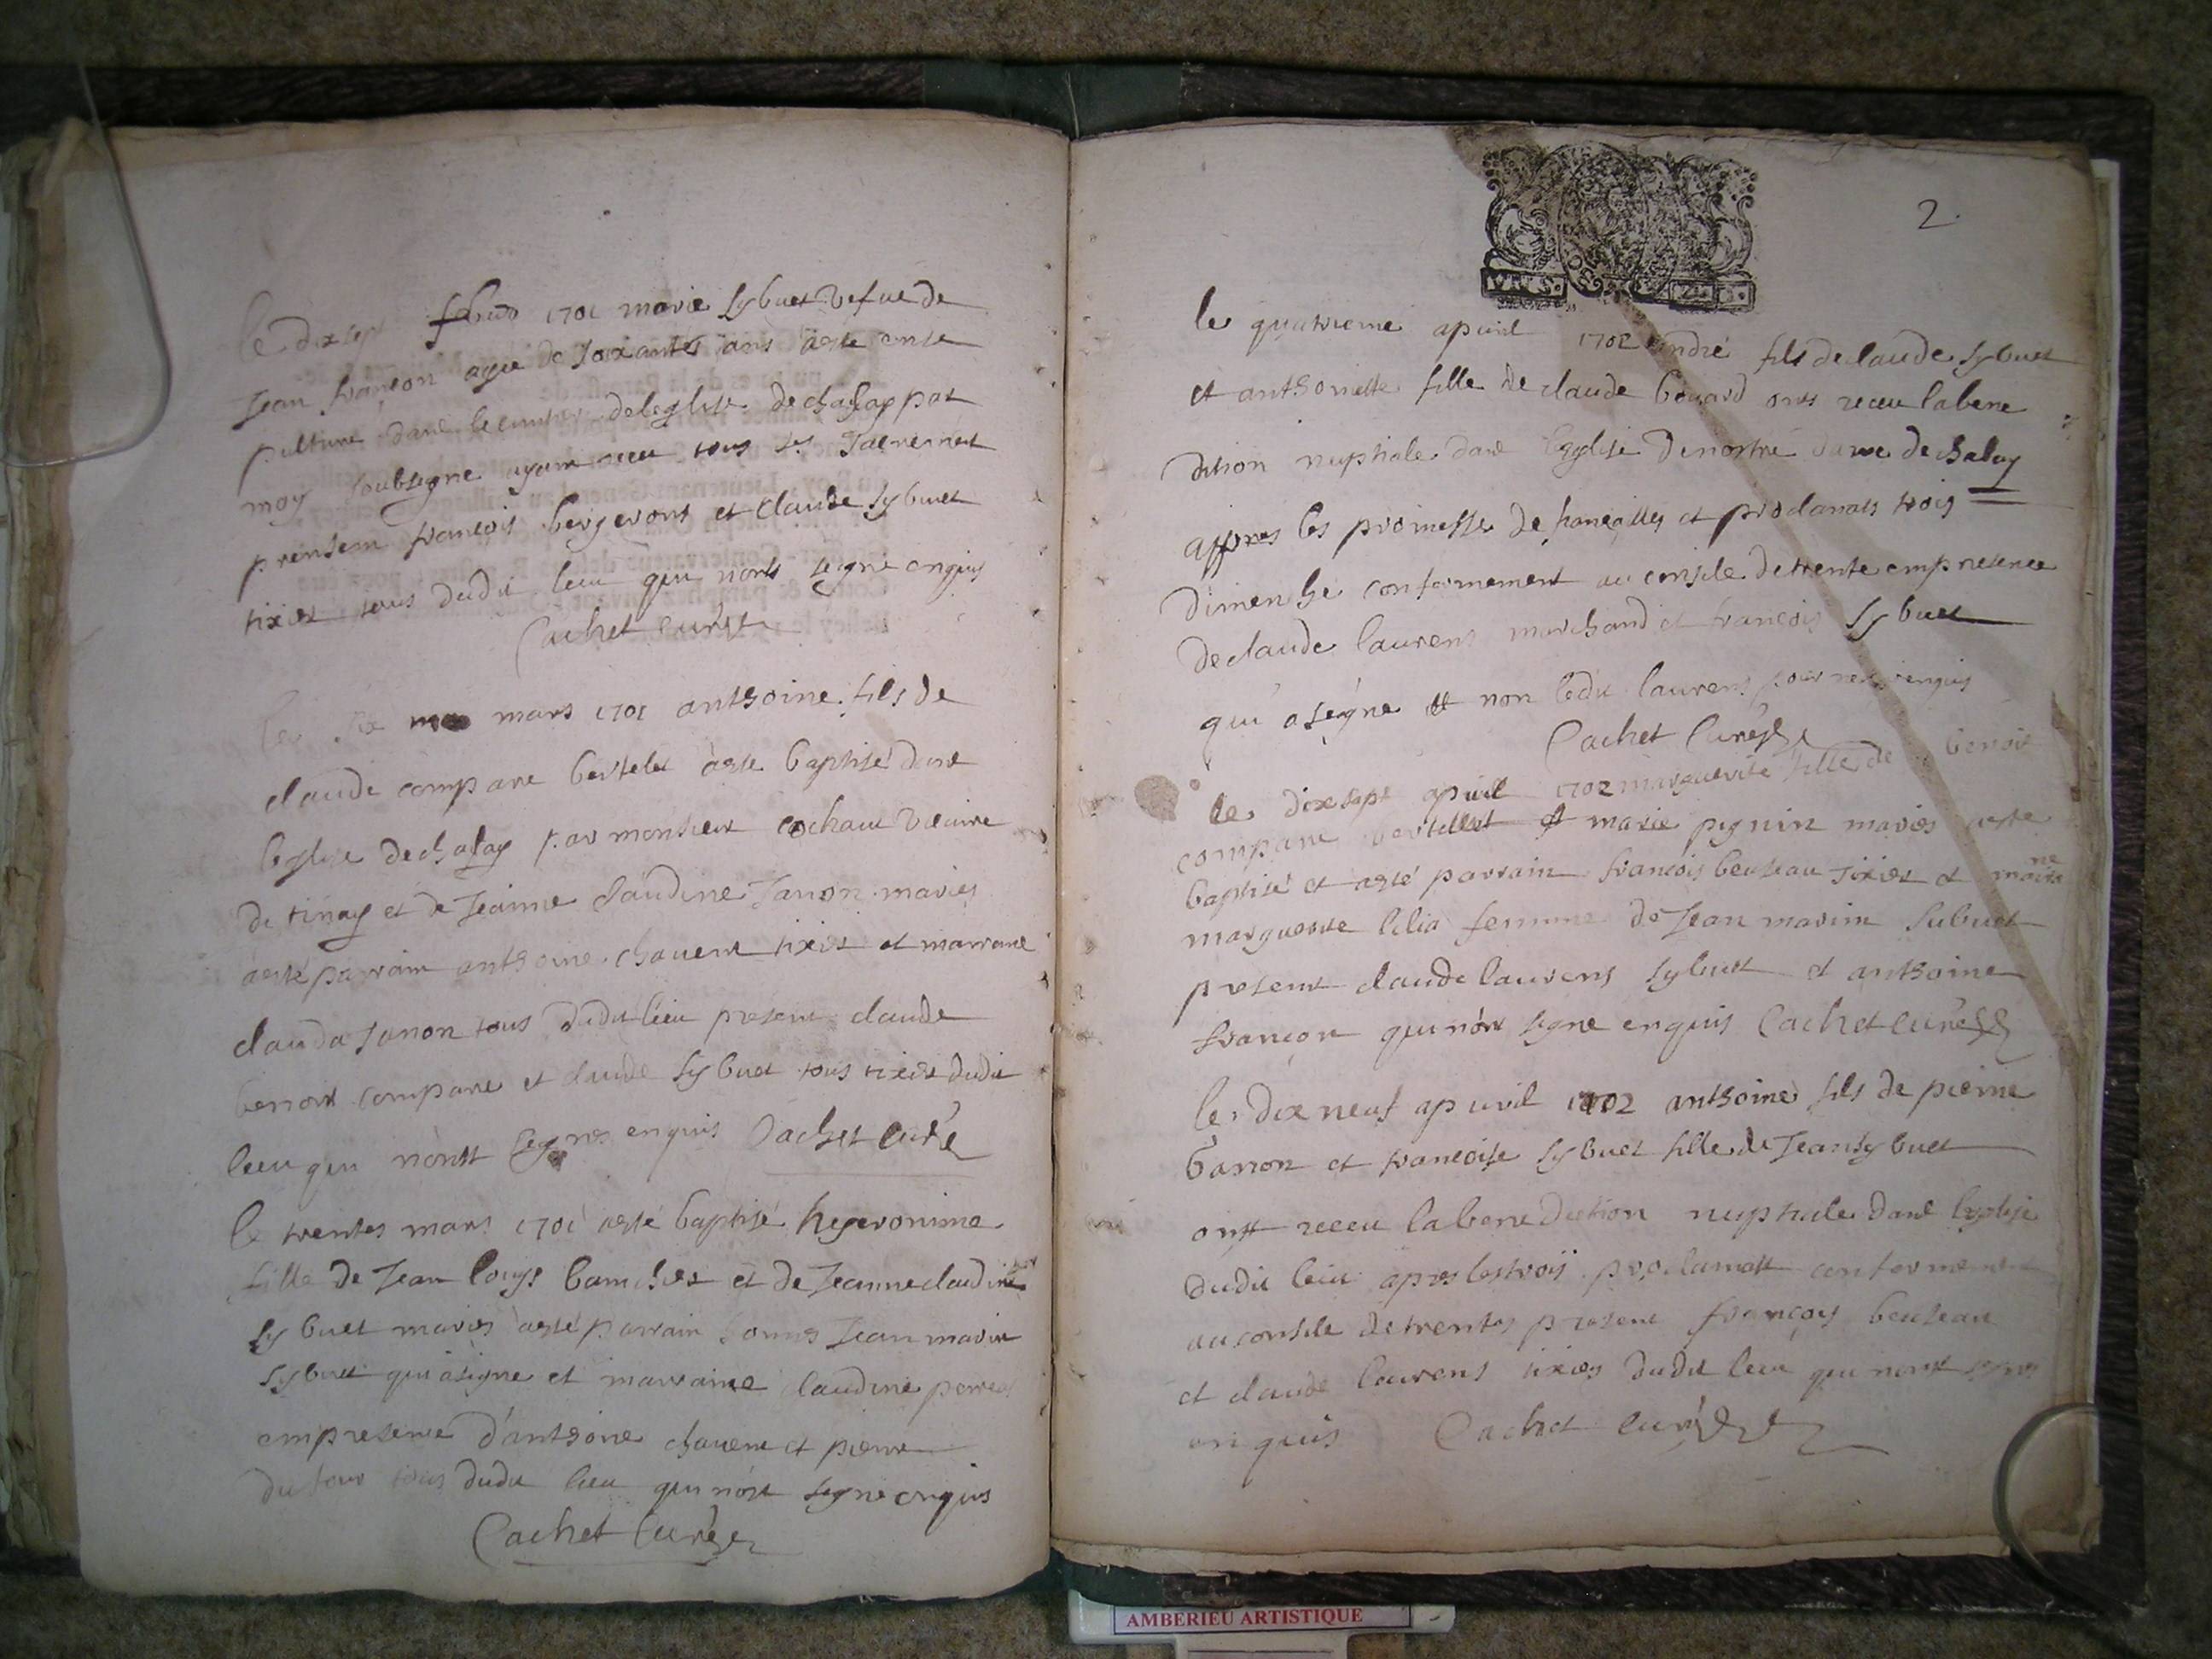 le dix sept 1701 marie sybuet vefue de
Jean françon agee de soixantes ans aeste ense
pulture dans le deleglise de chaley par
moy soubsigne ayant receu tous les
francois bergeront et Claude sybuet
tixier tous dudit lieu qui nont signe enquis
Cachet curé
le six mars 1701 anthoine fils de
claude compare bertelet aeste baptisé dans
leglise de chaley par monsieur vicaire
de tinay et de Jeanne Claudine Janon mariés
aesté parrain anthoine chavent tixier et marraine
clauda Janon tous dudit lieu present claude
benoit compare et claude sybuet tous tixier dudit
lieu qui nontt signes enquis Cachet curé
le trentes mars 1701 aesté baptisé hyeronime
fille de Jean louys et de Jeanne claudine
sybuet mariés aesté parrain Jean marin
sybuet qui a signe et marraine claudine
empresence d'anthoine chavent et pierre
dufour tous dudit lieu qui nont signe enquis
Cachet Curé
2
le quatrieme apuril 1702 andré fils de claude sybuet
et anthoinette fille de claude bouvard ont receu labene
dition nuptiale dans leglise de nostre dame de chaley
appres les promesses de fiancalles et proclamats trois
dimenche conformement au consile de trente empresence
de claude laurens marchand et francois sybuet
qui a signe et non ledit laurens pour enquis
Cachet Curé
le dixsept apuril 1702 marguerite fille de benoit
compare bertellet et marie pignin mariés aeste
baptisé et aesté parrain francois beuteau tixier et
marguerite lilia femme de Jean marin subuet
present claude laurens sybuet et anthoine
françon qui nont signe enquis Cachet curé
le dix neuf apuvil 1702 anthoine fils de pierre
banon et francoise sybuet fille de Jean sybuet
ontt receu labenediction nuptiale dans leglise
dudit lieu apres les troys proclamatt conformement
au consile de trentes present françoys beuteau
et claude laurens tixies dudit lieu qui nont signe
enquis Cachet curé
AMBERIEU ARTISTIQUE